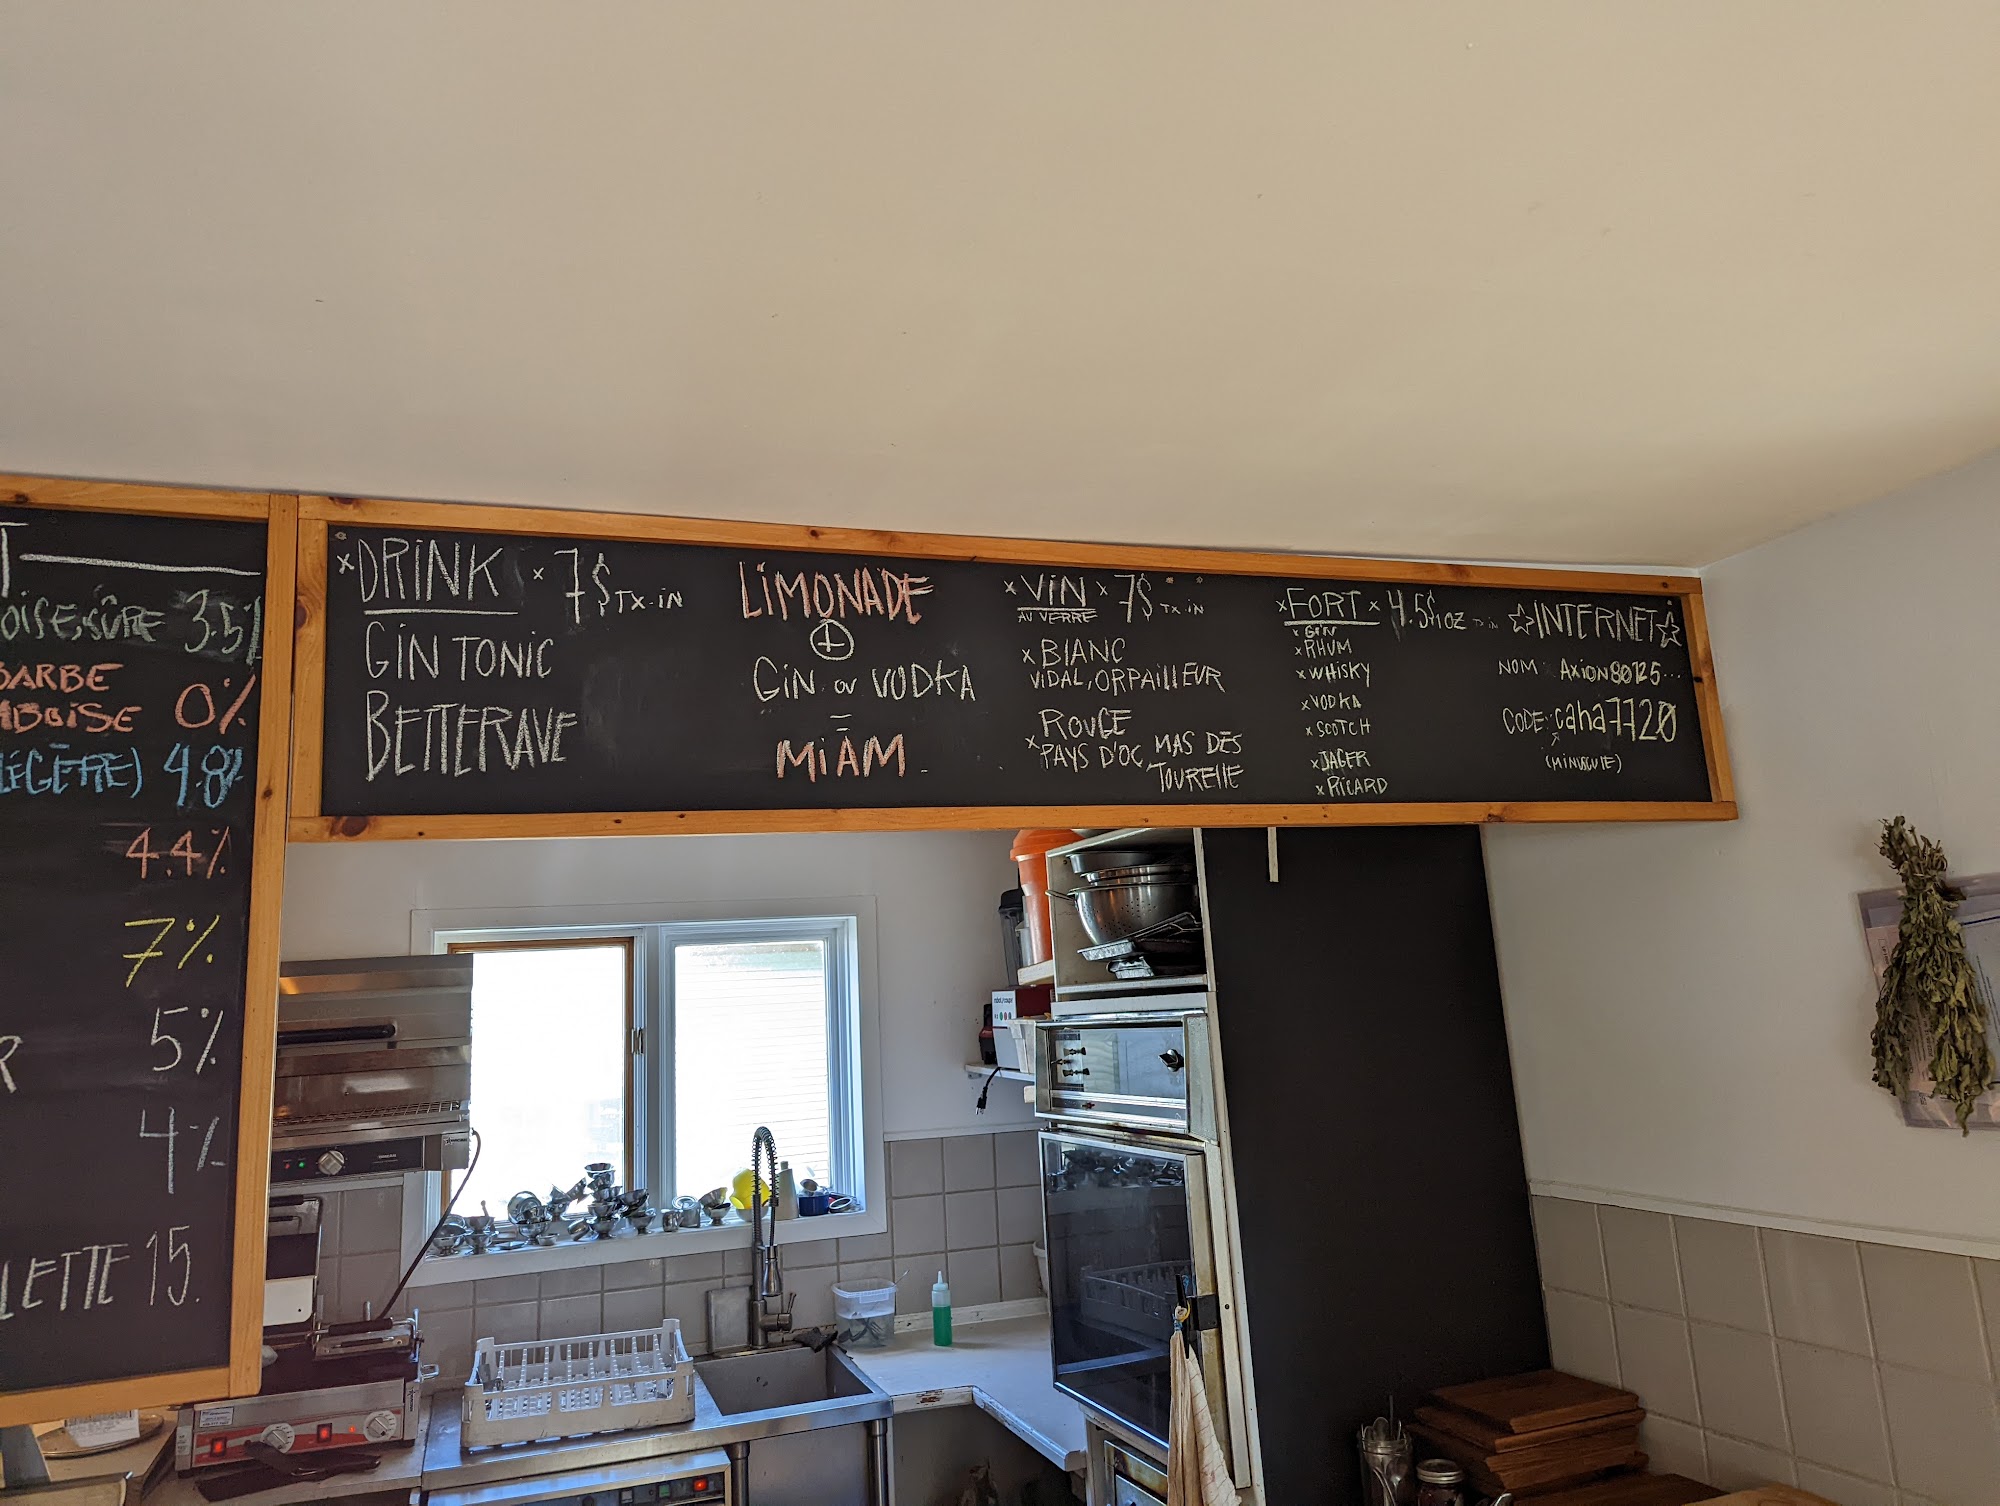 3.5%
BARBE
0%
4.8%
4.4%
7%
5%
R
4%
15.
x DRINK x 7$ TX-IN
GIN TONIC
BETTERAVE
LIMONADE
+
GIN OU VODKA
=
MIAM
x VIN x 7$ TX-IN
AU VERRE
x BLANC
VIDAL, ORPAILLEUR
ROUGE
x PAYS D'OC, MAS DES
TOURELLE
x FORT x 4.5$/1OZ TX IN
x GIN
x RHUM
x WHISKY
x VODKA
x SCOTCH
x JAGER
x RICARD
☆INTERNET☆
NOM: AXION80125...
CODE: caha7720
(MINUSCULE)